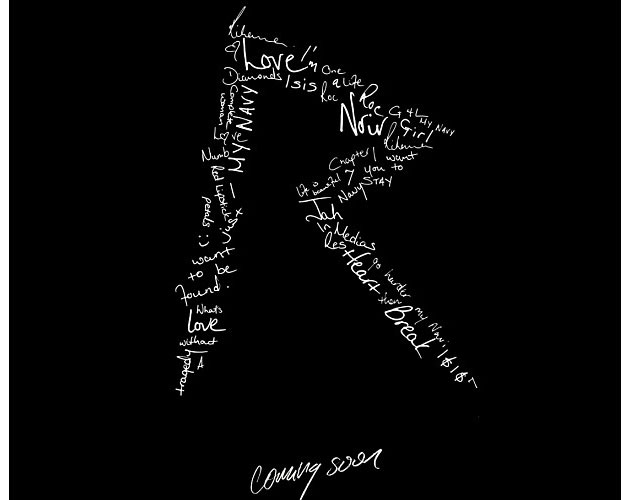 Rihanna
Love
I'm
One
Diamonds
Isis
a Life
Roc
Roc
G4L
My NAVY
Noir
Girl
Rihanna
Complete
woman
NAVY
Love
Numb
MY
Chapter
I want
7
you to
STAY
Navy
Life is beautiful
Red Lipstick
petals :)
Jah
In Medias
Res
I want
to be
found.
Heart
go harder
then
my Navi
Break
Whats
Love
without
tragedy
A
coming soon